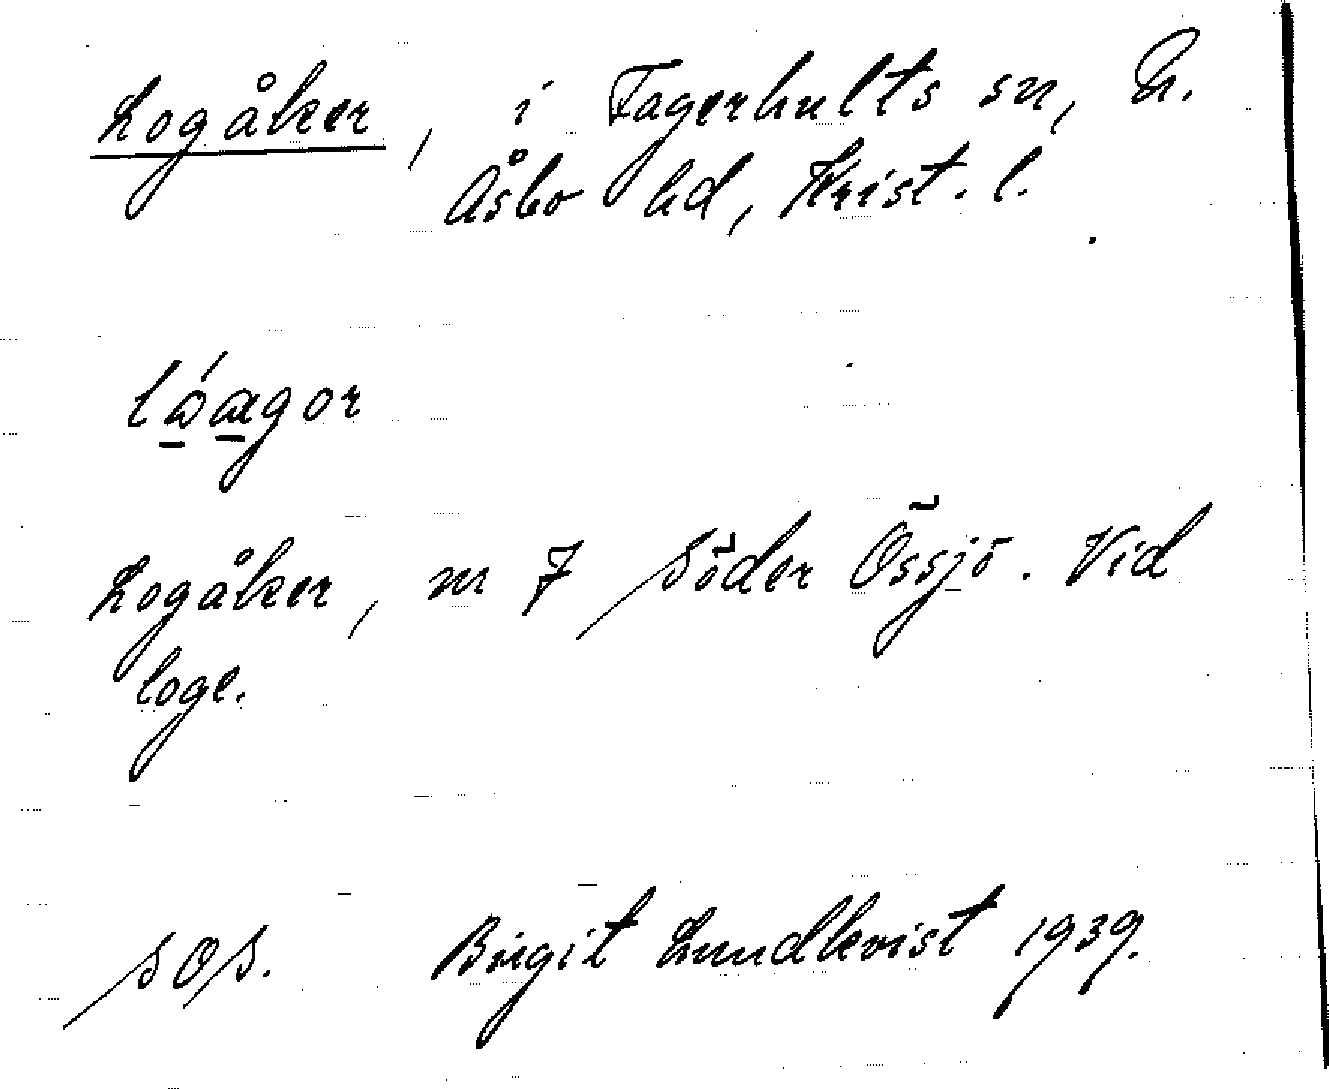 Logåker, i Fagerhults sn, N.
Åsbo hd, Krist. l.
Logåker, m 7 Söder Össjö. Vid
loge.
SOS. Birgit Lundkvist 1939.